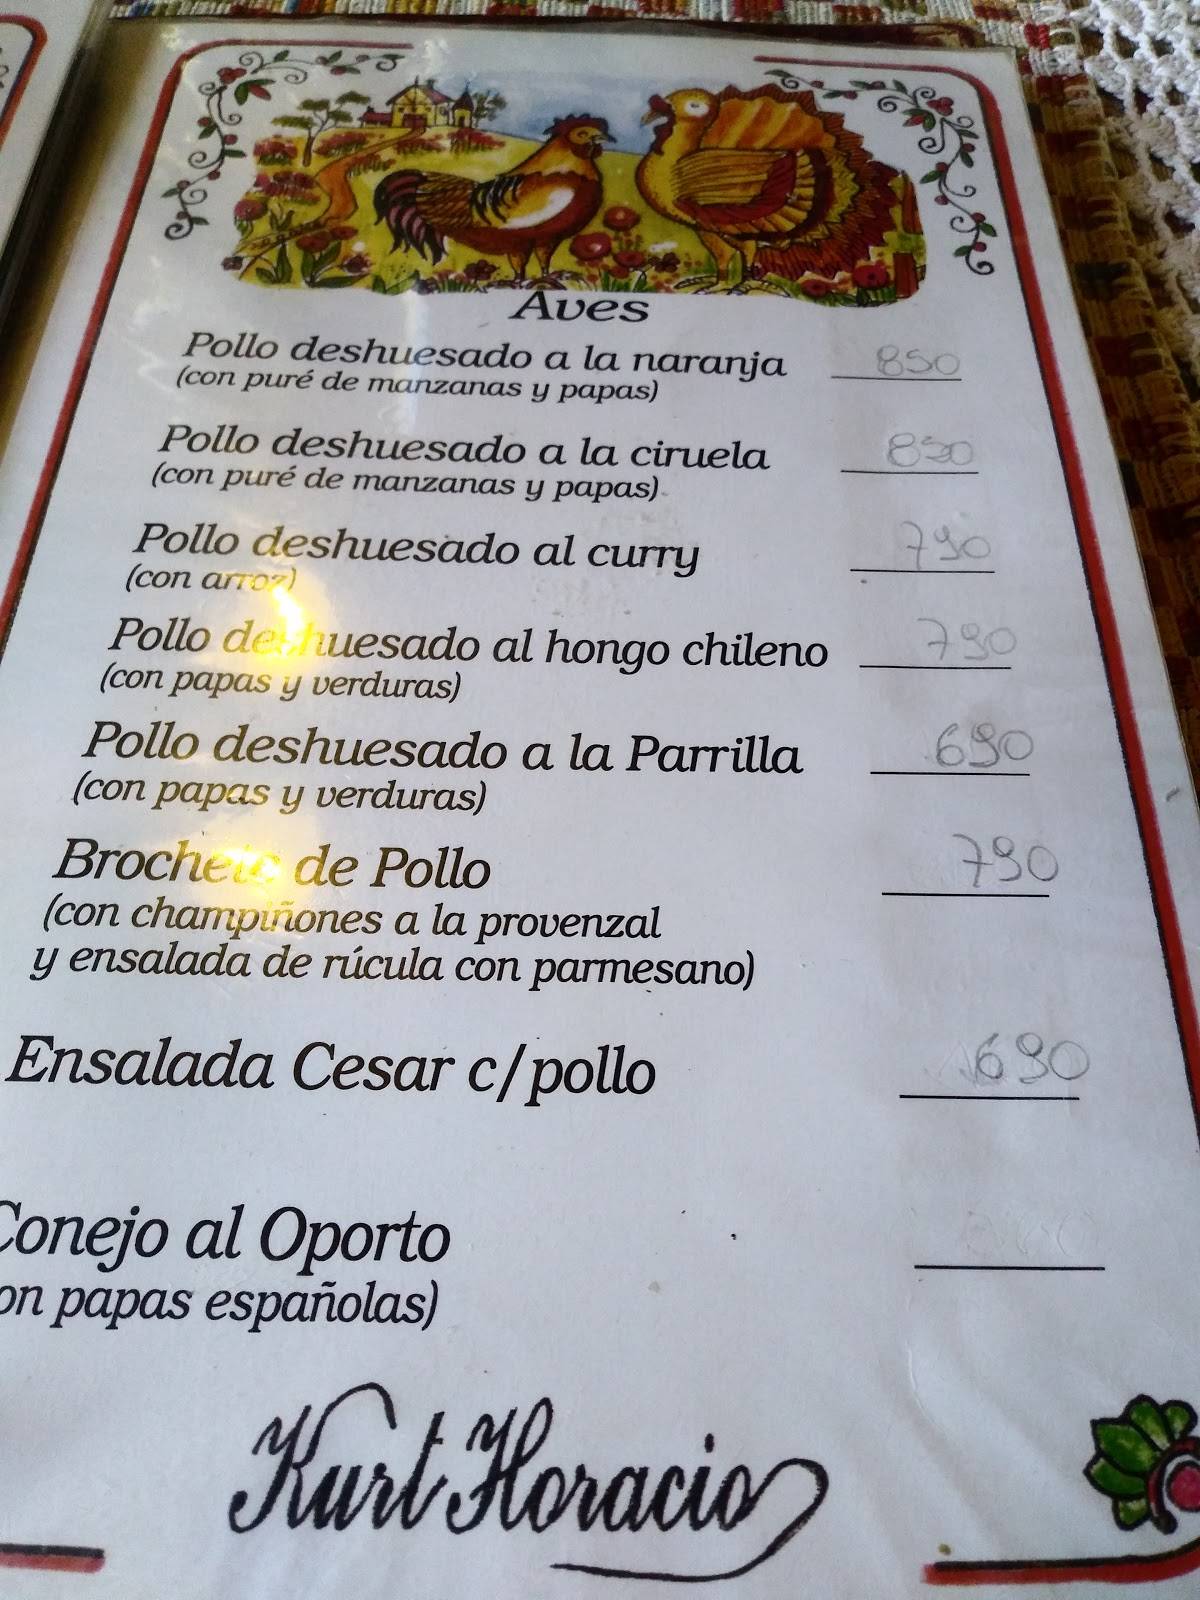 Aves
Pollo deshuesado a la naranja 850
(con puré de manzanas y papas)
Pollo deshuesado a la ciruela
(con puré de manzanas y papas)
Pollo deshuesado al curry 790
(con arroz)
Pollo deshuesado al hongo chileno 790
(con papas y verduras)
Pollo deshuesado a la Parrilla 690
(con papas y verduras)
Brochete de Pollo 790
(con champiñones a la provenzal
y ensalada de rúcula con parmesano)
Ensalada Cesar c/pollo 690
Conejo al Oporto
on papas españolas)
Kurt Horacio